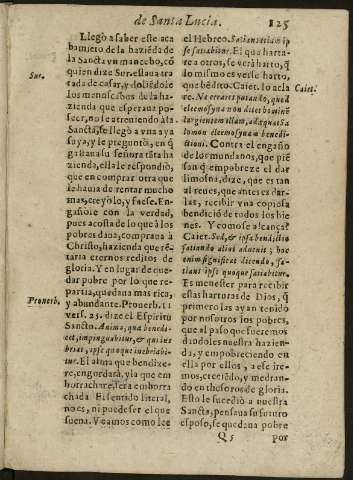 de Santa Lucia.
125
Llegò a saber este aca
bamiẽto de la haziẽda de
la Sancta vn mancebo, cõ
Sur.
quien dize Sur. estaua tra
tada de casar, y doliẽdole
los menoscabos de la ha-
zienda que esperaua pos-
seer, no se atreuiendo a la
Sancta, se llegò a vna aya
suya, y le preguntò, en q̃
gastaua su señora tãta ha
zienda, ella le respondiò,
que en comprar otra que
le hauia de rentar mucho
mas, creyòlo, y fuese. En-
gañole con la verdad,
pues acosta de lo que à los
pobres daua, compraua à
Christo, hazienda que rẽ-
taria eternos reditos de
gloria. Y en lugar de que-
dar pobre por lo que re-
partia, quedaua mas rica,
Prouerb.
y abundante. Prouerb. 11
vers. 25. dize el Espiritu
Sancto. Anima, qua benedi-
cit, impinguabitur, & qui ine
briat, ipse quoque inebriabi-
tur. El alma que bendixe-
re, engordarà, y la que em
borrachare, serà emborra
chada. El sentido literal,
no es, ni puede ser el que
suena. Veamos como lee
el Hebreo. Satians etiam ip
se satiabitur. El que harta-
re a otros, se verà harto, q̃
lo mismo es verse harto,
que bẽdito. Caiet. lo acla
Caiet.
ra. Ne erraret putando, quod
eleemosyna non ditet hominẽ
largientem illam, adæquat Sa
lomon eleemosynam benedi-
ctioni. Contra el engaño
de los mundanos, que piẽ
san q̃ empobreze el dar
limosna, dize, que es tan
al reues, que antes es dar-
las, recibir vna copiosa
bendiciõ de todos los bie
nes. Y como se alcança?
Caiet. Sed, & ipsa benedictio
satiando alios aduenit; hoc
enim significat dicendo, sa-
tians ipse quoque satiabitur.
Es menester para recibir
estas harturas de Dios, q̃
primero las ayan tenido
por nosotros los pobres,
que al paso que fueremos
dandoles nuestra hazien-
da, y empobreciendo en
ella por ellos, a ese ire-
mos, creciẽdo, y medran-
do en thesoros de gloria.
Esto le sucediò a nuestra
Sancta, pensaua su futuro
esposo, se quedaua pobre
Q 5
por